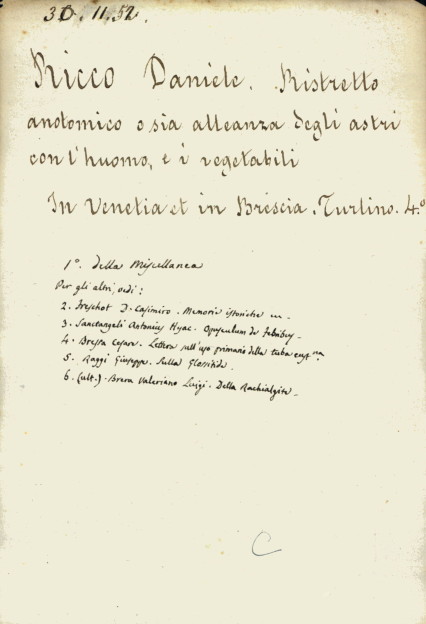 30.11.52.
Ricco Daniele. Ristretto
anotomico o sia alleanza degli astri
con l'huomo, e i vegetabili
In Venetia et in Brescia. Turlino. 4.º
1º. della Miscellanea
Per gli altri, vedi:
2. Freschot D. Casimiro. Memorie istoriche
3. Sanctangeli Antonius Hyac. Opusculum de Febribus
4. Bressa Cesare. Lettera sull'uso primario della tuba eust.na
5. Raggi Giuseppe. Sulla Glossitide.
6. (ult.) Brera Valeriano Luigi. Della Rachialgite.
C